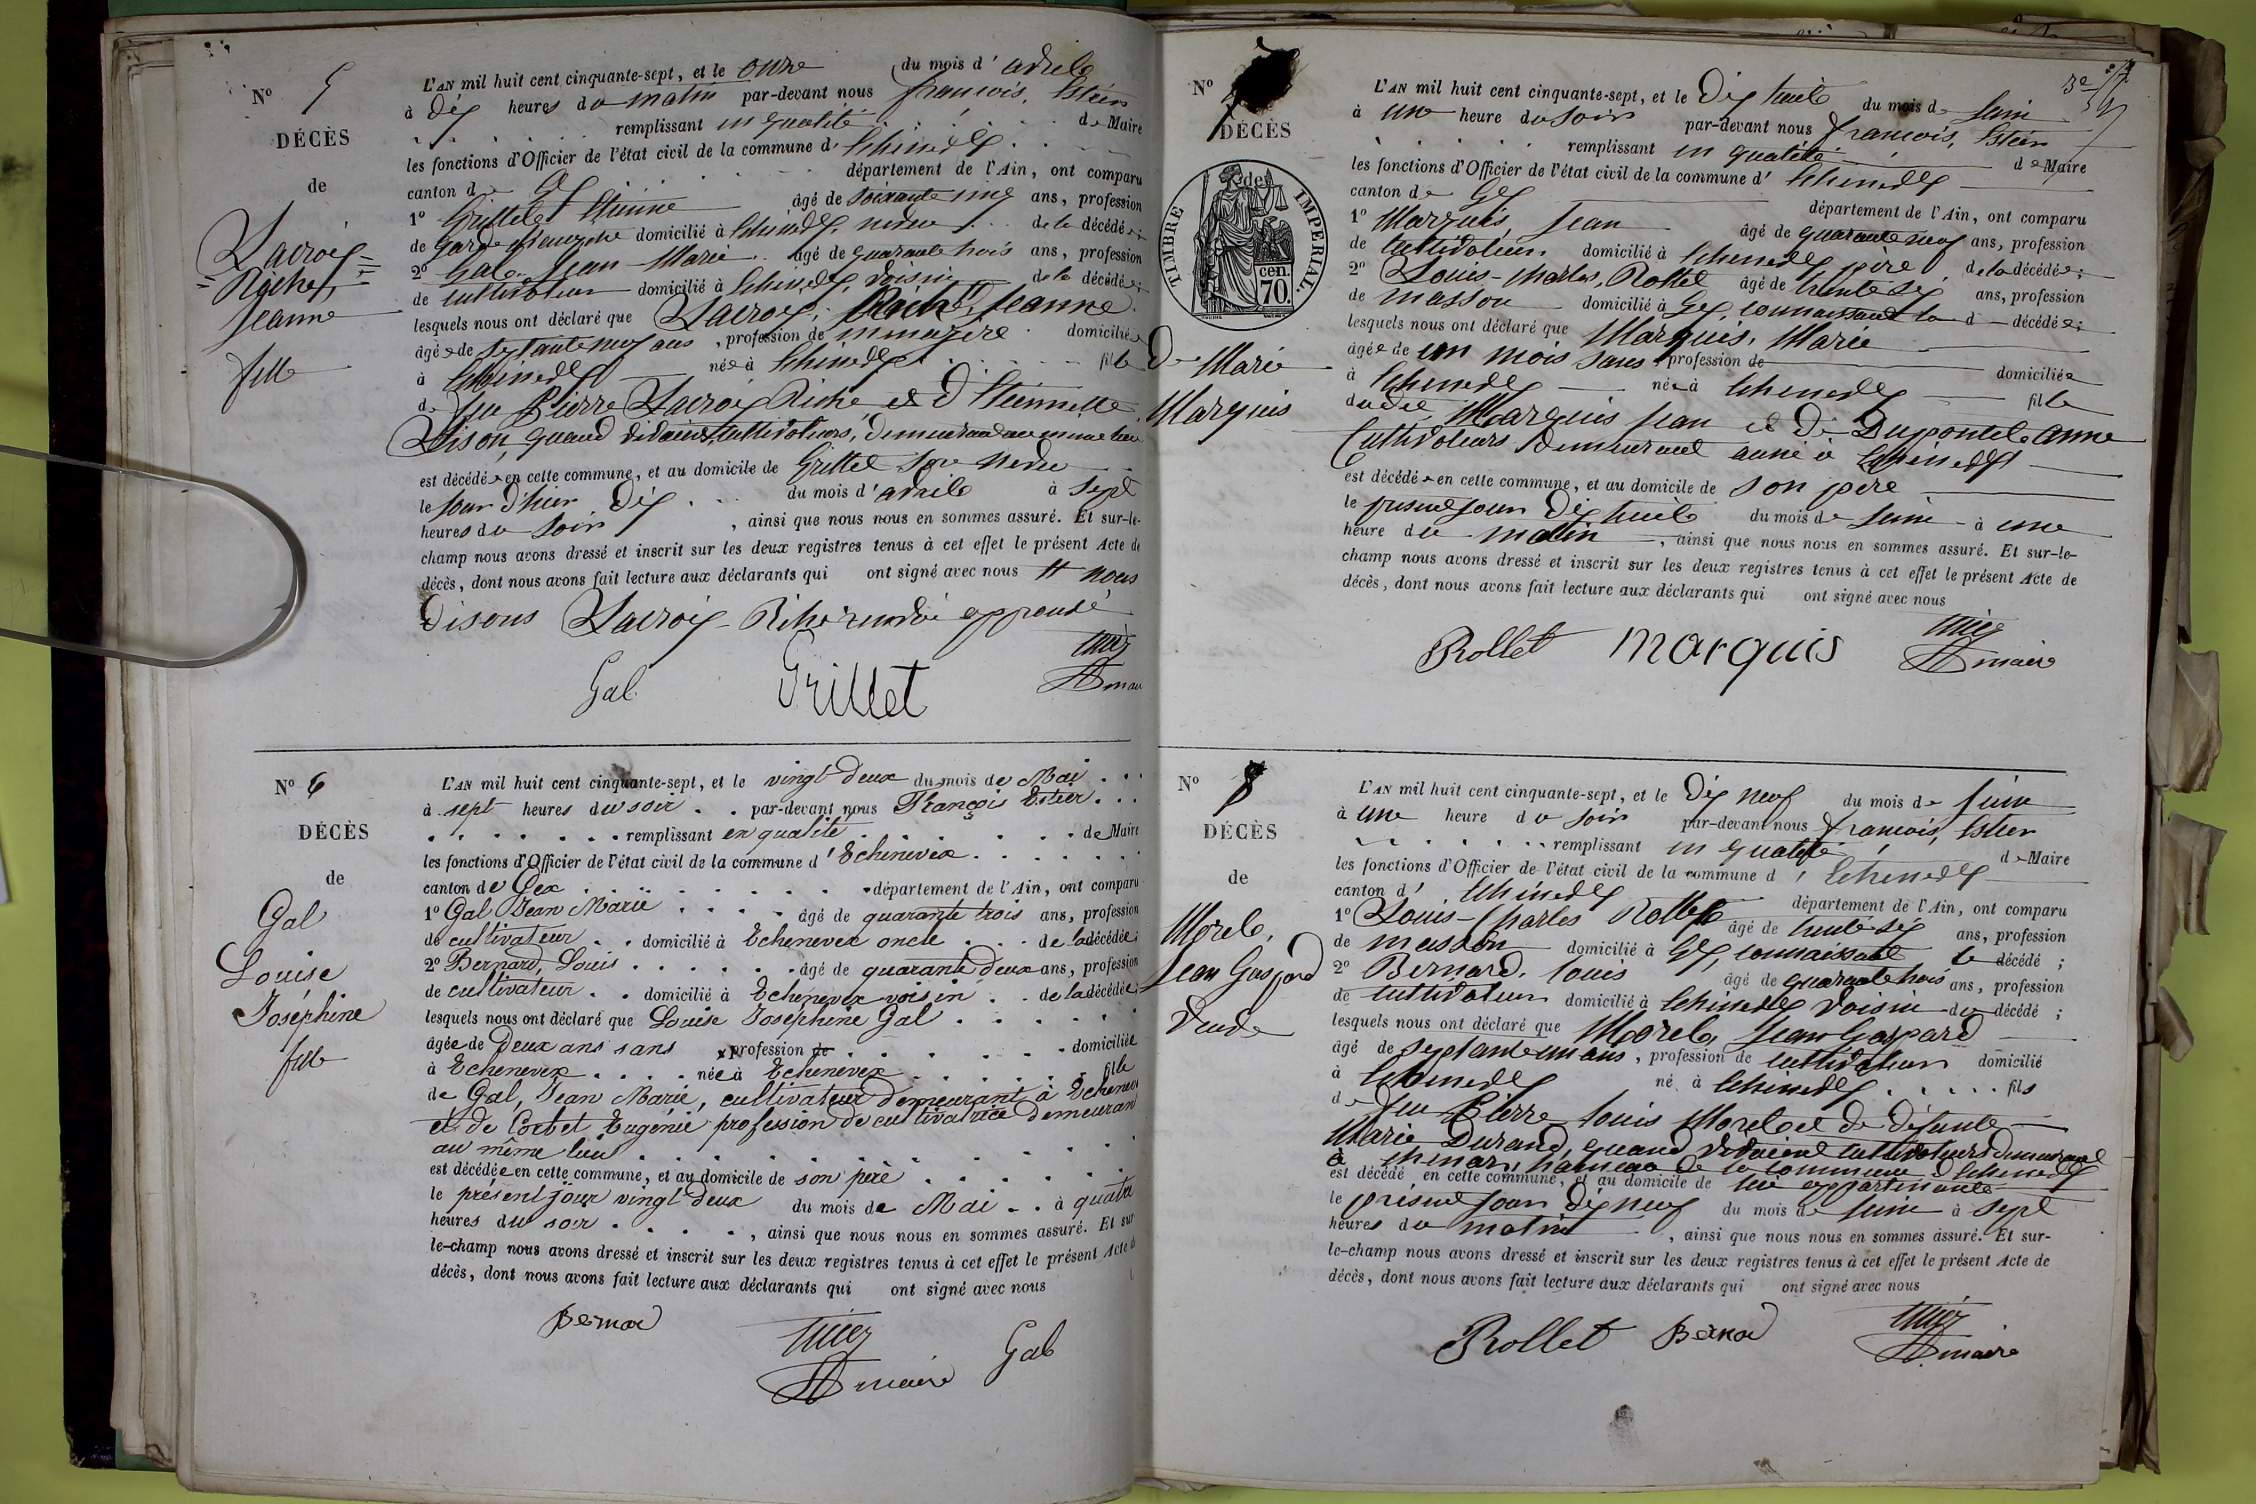 N° 5
DÉCÈS
de
Lacroix=
=Riche,
Jeanne
fille
L'AN mil huit cent cinquante-sept, et le onze du mois d'avrile
à dix heures du matin par-devant nous francois, Estier
remplissant en qualité de Maire
les fonctions d'Officier de l'état civil de la commune d'Echenevex
canton de Gex département de l'Ain, ont comparu
1° Grillet Etienne âgé de soixante cinq ans, profession
de Garde champetre domicilié à Echenevex, neveu de la décédée;
2° Gal. Jean-Marie âgé de quarante trois ans, profession
de cultivateur domicilié à Echenevex, voisin de la décédée;
lesquels nous ont déclaré que Lacroix, Riche, Jeanne
âgée de septante neuf ans, profession de menagère domiciliée
à Echenevex née à Echenevex fille
de feu Pierre Lacroix Riche et d'Etiennette
Dison, quand vivaient cultivateurs, demeurand au meme lieu
est décédée en cette commune, et au domicile de Grillet son neveu
le jour d'hier dix du mois d'avrile à sept
heures du soir, ainsi que nous nous en sommes assuré. Et sur-le-
champ nous avons dressé et inscrit sur les deux registres tenus à cet effet le présent Acte de
décès, dont nous avons fait lecture aux déclarants qui ont signé avec nous # nous
disons Lacroix-Riche approuvé
Gal Grillet maire
N° 6
DÉCÈS
de
Gal
Louise
Joséphine
fille
L'AN mil huit cent cinquante-sept, et le vingt deux du mois de Mai
à sept heures du soir par-devant nous François Estier
remplissant en qualité de Maire
les fonctions d'Officier de l'état civil de la commune d'Echenevex
canton de Gex département de l'Ain, ont comparu
1° Gal Jean Marie âgé de quarante trois ans, profession
de cultivateur domicilié à Echenevex oncle de la décédée;
2° Bernard, Louis âgé de quarante deux ans, profession
de cultivateur domicilié à Echenevex voisin de la décédée;
lesquels nous ont déclaré que Louise Joséphine Gal
âgée de deux ans sans profession de domiciliée
à Echenevex née à Echenevex fille
de Gal, Jean Marie, cultivateur demeurant à Echenevex
et de Corbet Eugénie profession de cultivatrice demeurant
au même lieu
est décédée en cette commune, et au domicile de son père
le présent jour vingt deux du mois de Mai à quatre
heures du soir, ainsi que nous nous en sommes assuré. Et sur
le-champ nous avons dressé et inscrit sur les deux registres tenus à cet effet le présent Acte de
décès, dont nous avons fait lecture aux déclarants qui ont signé avec nous
Bernar maire Gal
N° 7
DÉCÈS
de
TIMBRE IMPERIAL.
70 cen.
De Marie
Marquis
L'AN mil huit cent cinquante-sept, et le dix huit du mois de Juin
à une heure du soir par-devant nous francois, Estier
remplissant en qualité de Maire
les fonctions d'Officier de l'état civil de la commune d'Echenevex
canton de Gex département de l'Ain, ont comparu
1° Marquis Jean âgé de quarante neuf ans, profession
de cultivateur domicilié à Echenevex père de la décédée;
2° Louis-Charles, Rollet âgé de trente six ans, profession
de masson domicilié à Gex, connaissant la d décédée;
lesquels nous ont déclaré que Marquis, Marie
âgée de un mois sans profession de domiciliée
à Echenevex née à Echenevex fille
dudit Marquis Jean et de Dupontel anne
Cultivateurs demeurant aussi à Echenevex
est décédée en cette commune, et au domicile de son père
le présent jour dix huit du mois de Juin à une
heure du matin, ainsi que nous nous en sommes assuré. Et sur-le-
champ nous avons dressé et inscrit sur les deux registres tenus à cet effet le présent Acte de
décès, dont nous avons fait lecture aux déclarants qui ont signé avec nous
Rollet Marquis maire
N° 8
DÉCÈS
de
Morel,
Jean Gaspard
Veuf
L'AN mil huit cent cinquante-sept, et le dix neuf du mois de Juin
à une heure du soir par-devant nous francois, Estier
remplissant en qualité de Maire
les fonctions d'Officier de l'état civil de la commune d'Echenevex
canton d'Echenevex département de l'Ain, ont comparu
1° Louis-Charles Rollet âgé de trente six ans, profession
de masson domicilié à Gex, connaissant le décédé;
2° Bernard, Louis âgé de quarante trois ans, profession
de cultivateur domicilié à Echenevex voisin du décédé;
lesquels nous ont déclaré que Morel, Jean Gaspard
âgé de septante un ans, profession de cultivateur domicilié
à Echenevex né à Echenevex fils
de feu Pierre Louis Morel et de défunte
Marie Durand, quand vivaient cultivateurs demeurant
à chenaz, hameau de la commune d'Echenevex
est décédé en cette commune, et au domicile de lui appartenante
le présent jour dix neuf du mois de Juin à sept
heures du matin, ainsi que nous nous en sommes assuré. Et sur-
le-champ nous avons dressé et inscrit sur les deux registres tenus à cet effet le présent Acte de
décès, dont nous avons fait lecture aux déclarants qui ont signé avec nous
Rollet Bernar maire